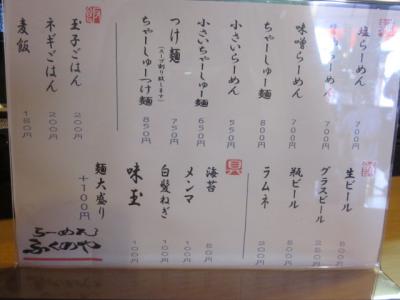 塩らーめん 700円
らーめん 700円
味噌らーめん 700円
ちゃーしゅー麺 800円
小さいらーめん 550円
小さいちゃーしゅー麺 650円
つけ麺 750円
(スープ割り致します)
ちゃーしゅーつけ麺 850円
玉子ごはん 200円
ネギごはん 200円
麦飯 150円
生ビール 500円
グラスビール
瓶ビール
ラムネ 200円
具
海苔
メンマ 100円
白髪ねぎ 100円
味玉 100円
麺大盛り +100円
らーめん
ふくのや